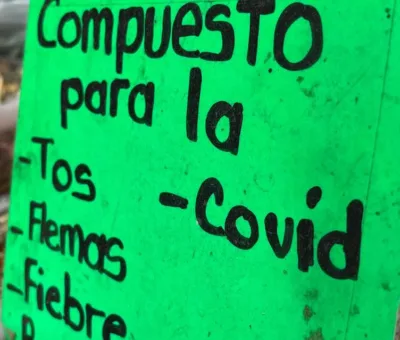 Compuesto
para la
-Tos
-Covid
-Flemas
-Fiebre